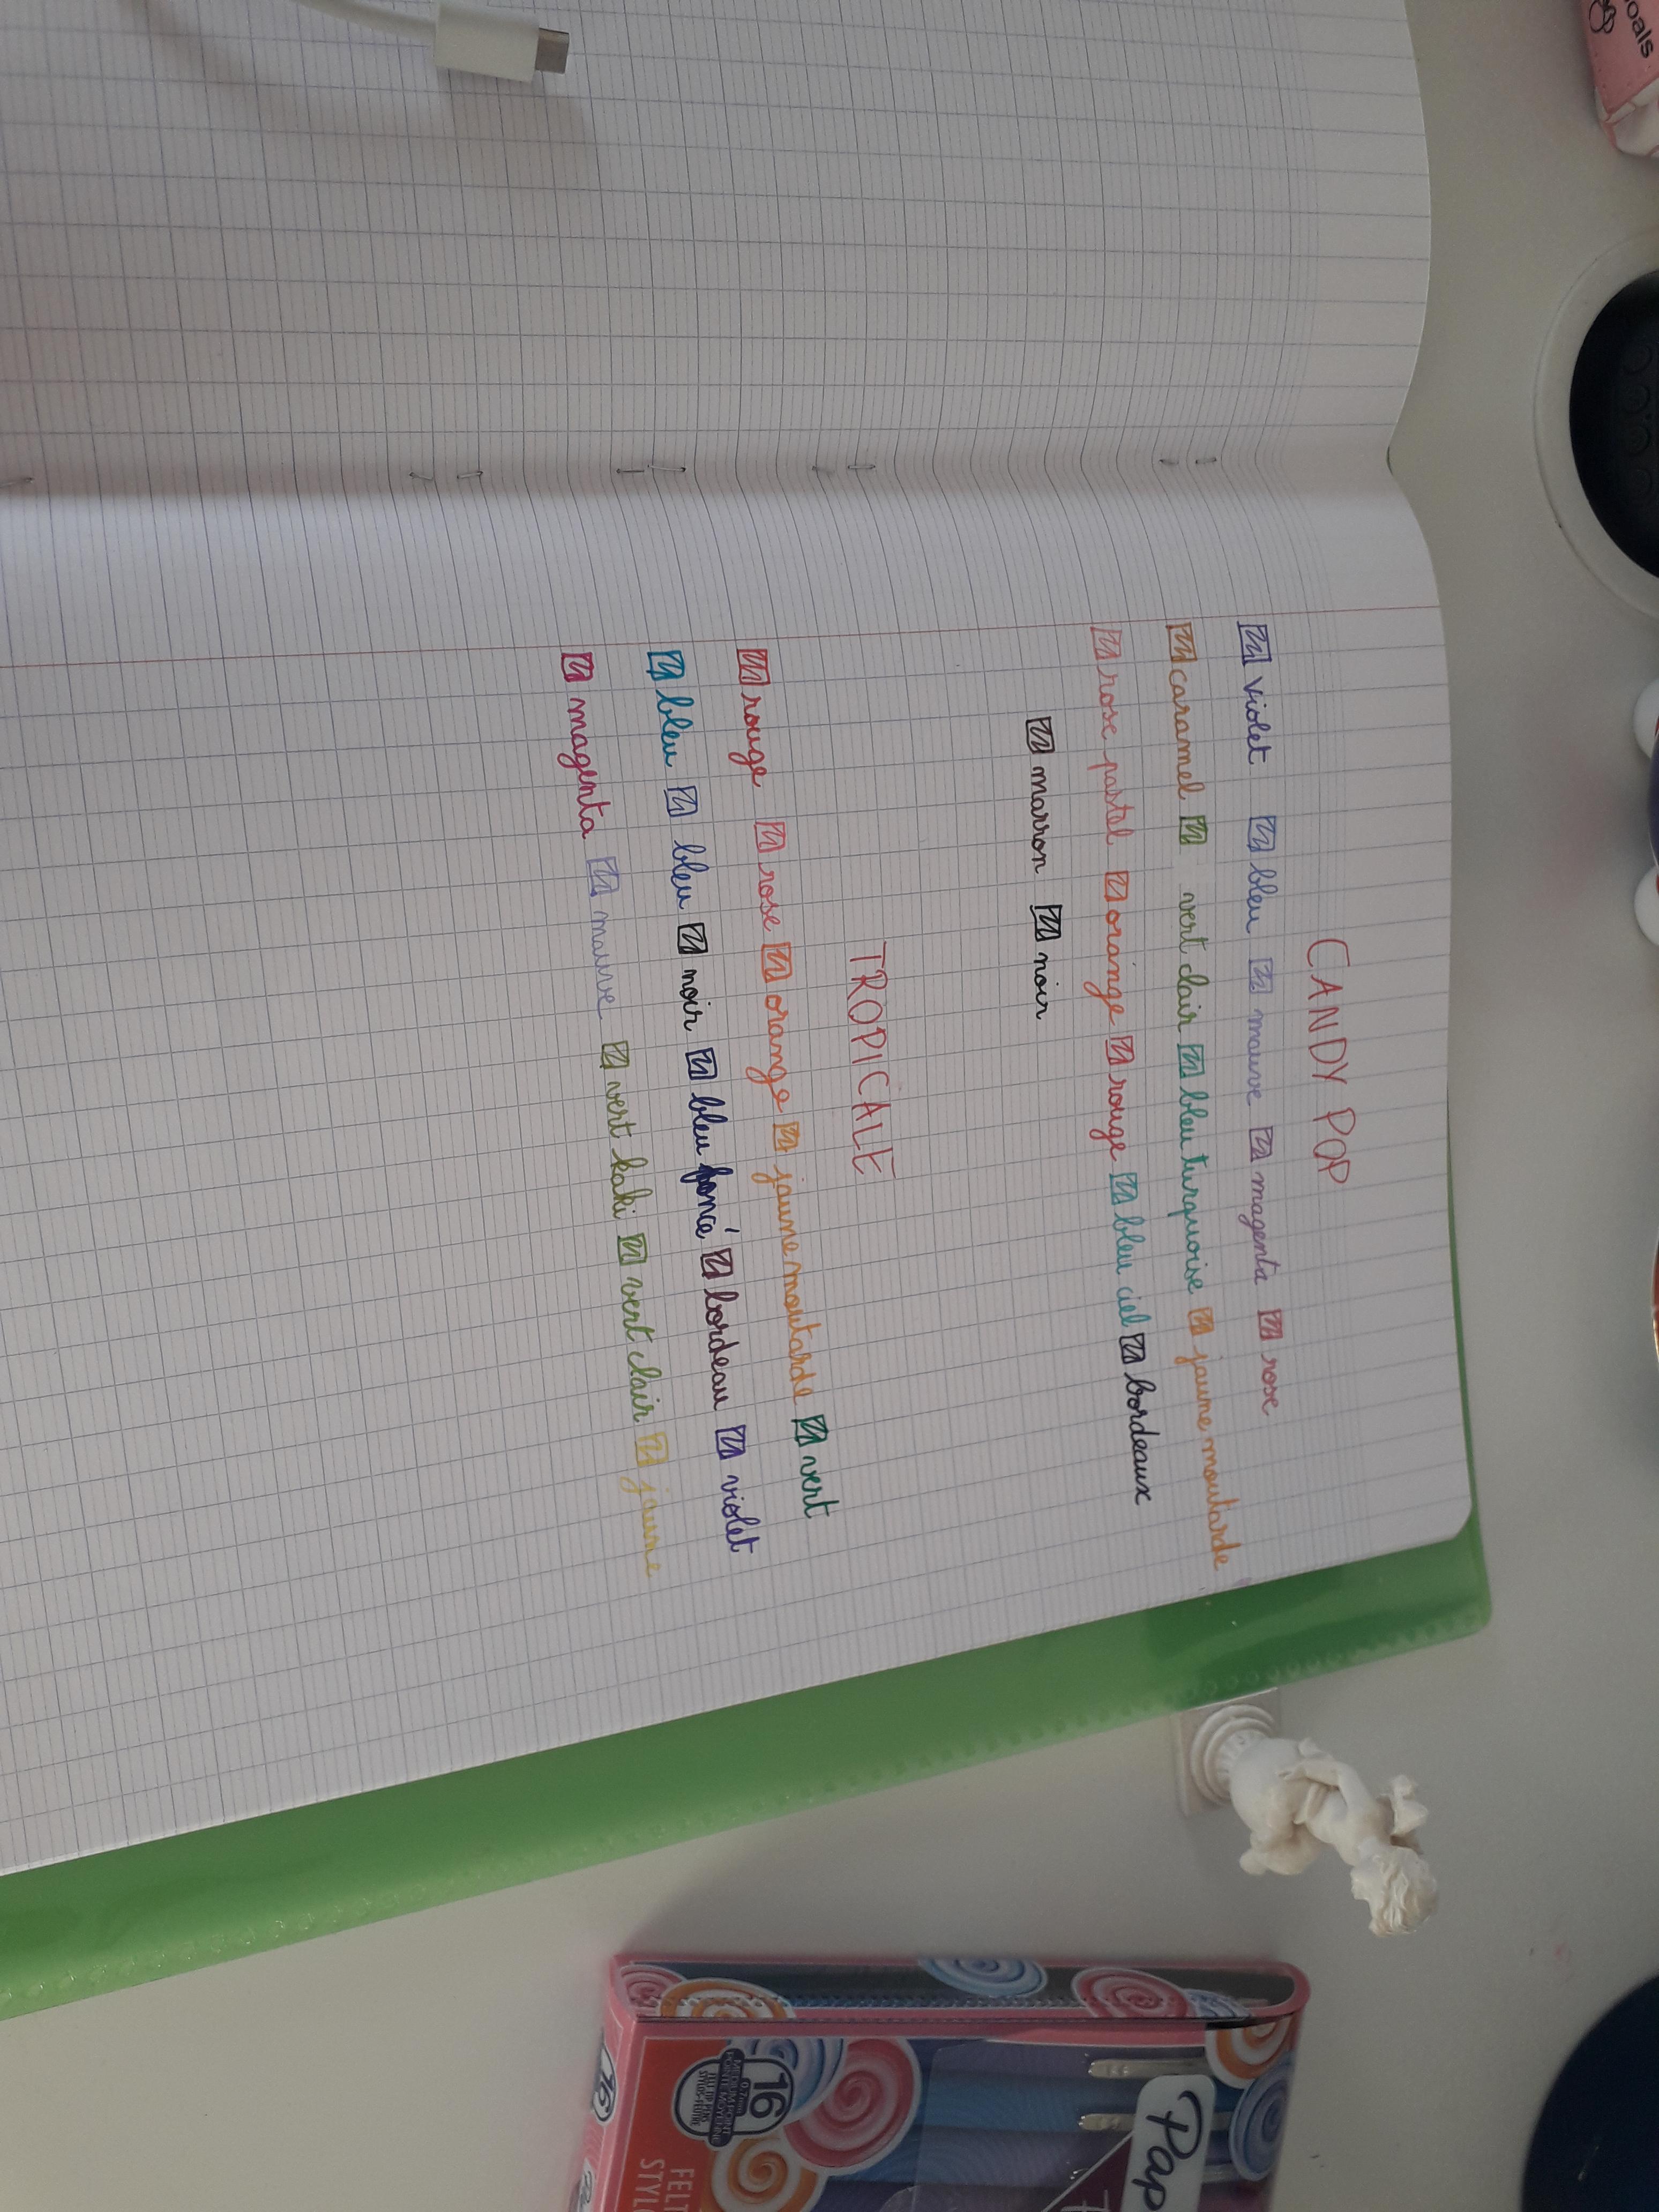 CANDY POP
violet bleu mauve magenta rose
caramel vert clair bleu turquoise jaune moutarde
rose pastel orange rouge bleu ciel bordeaux
marron noir
TROPICALE
rouge rose orange jaune moutarde vert
bleu bleu noir bleu foncé bordeau violet
magenta mauve vert kaki vert clair jaune
oals
Pap
16
0.7mm
FELT
STYL
16